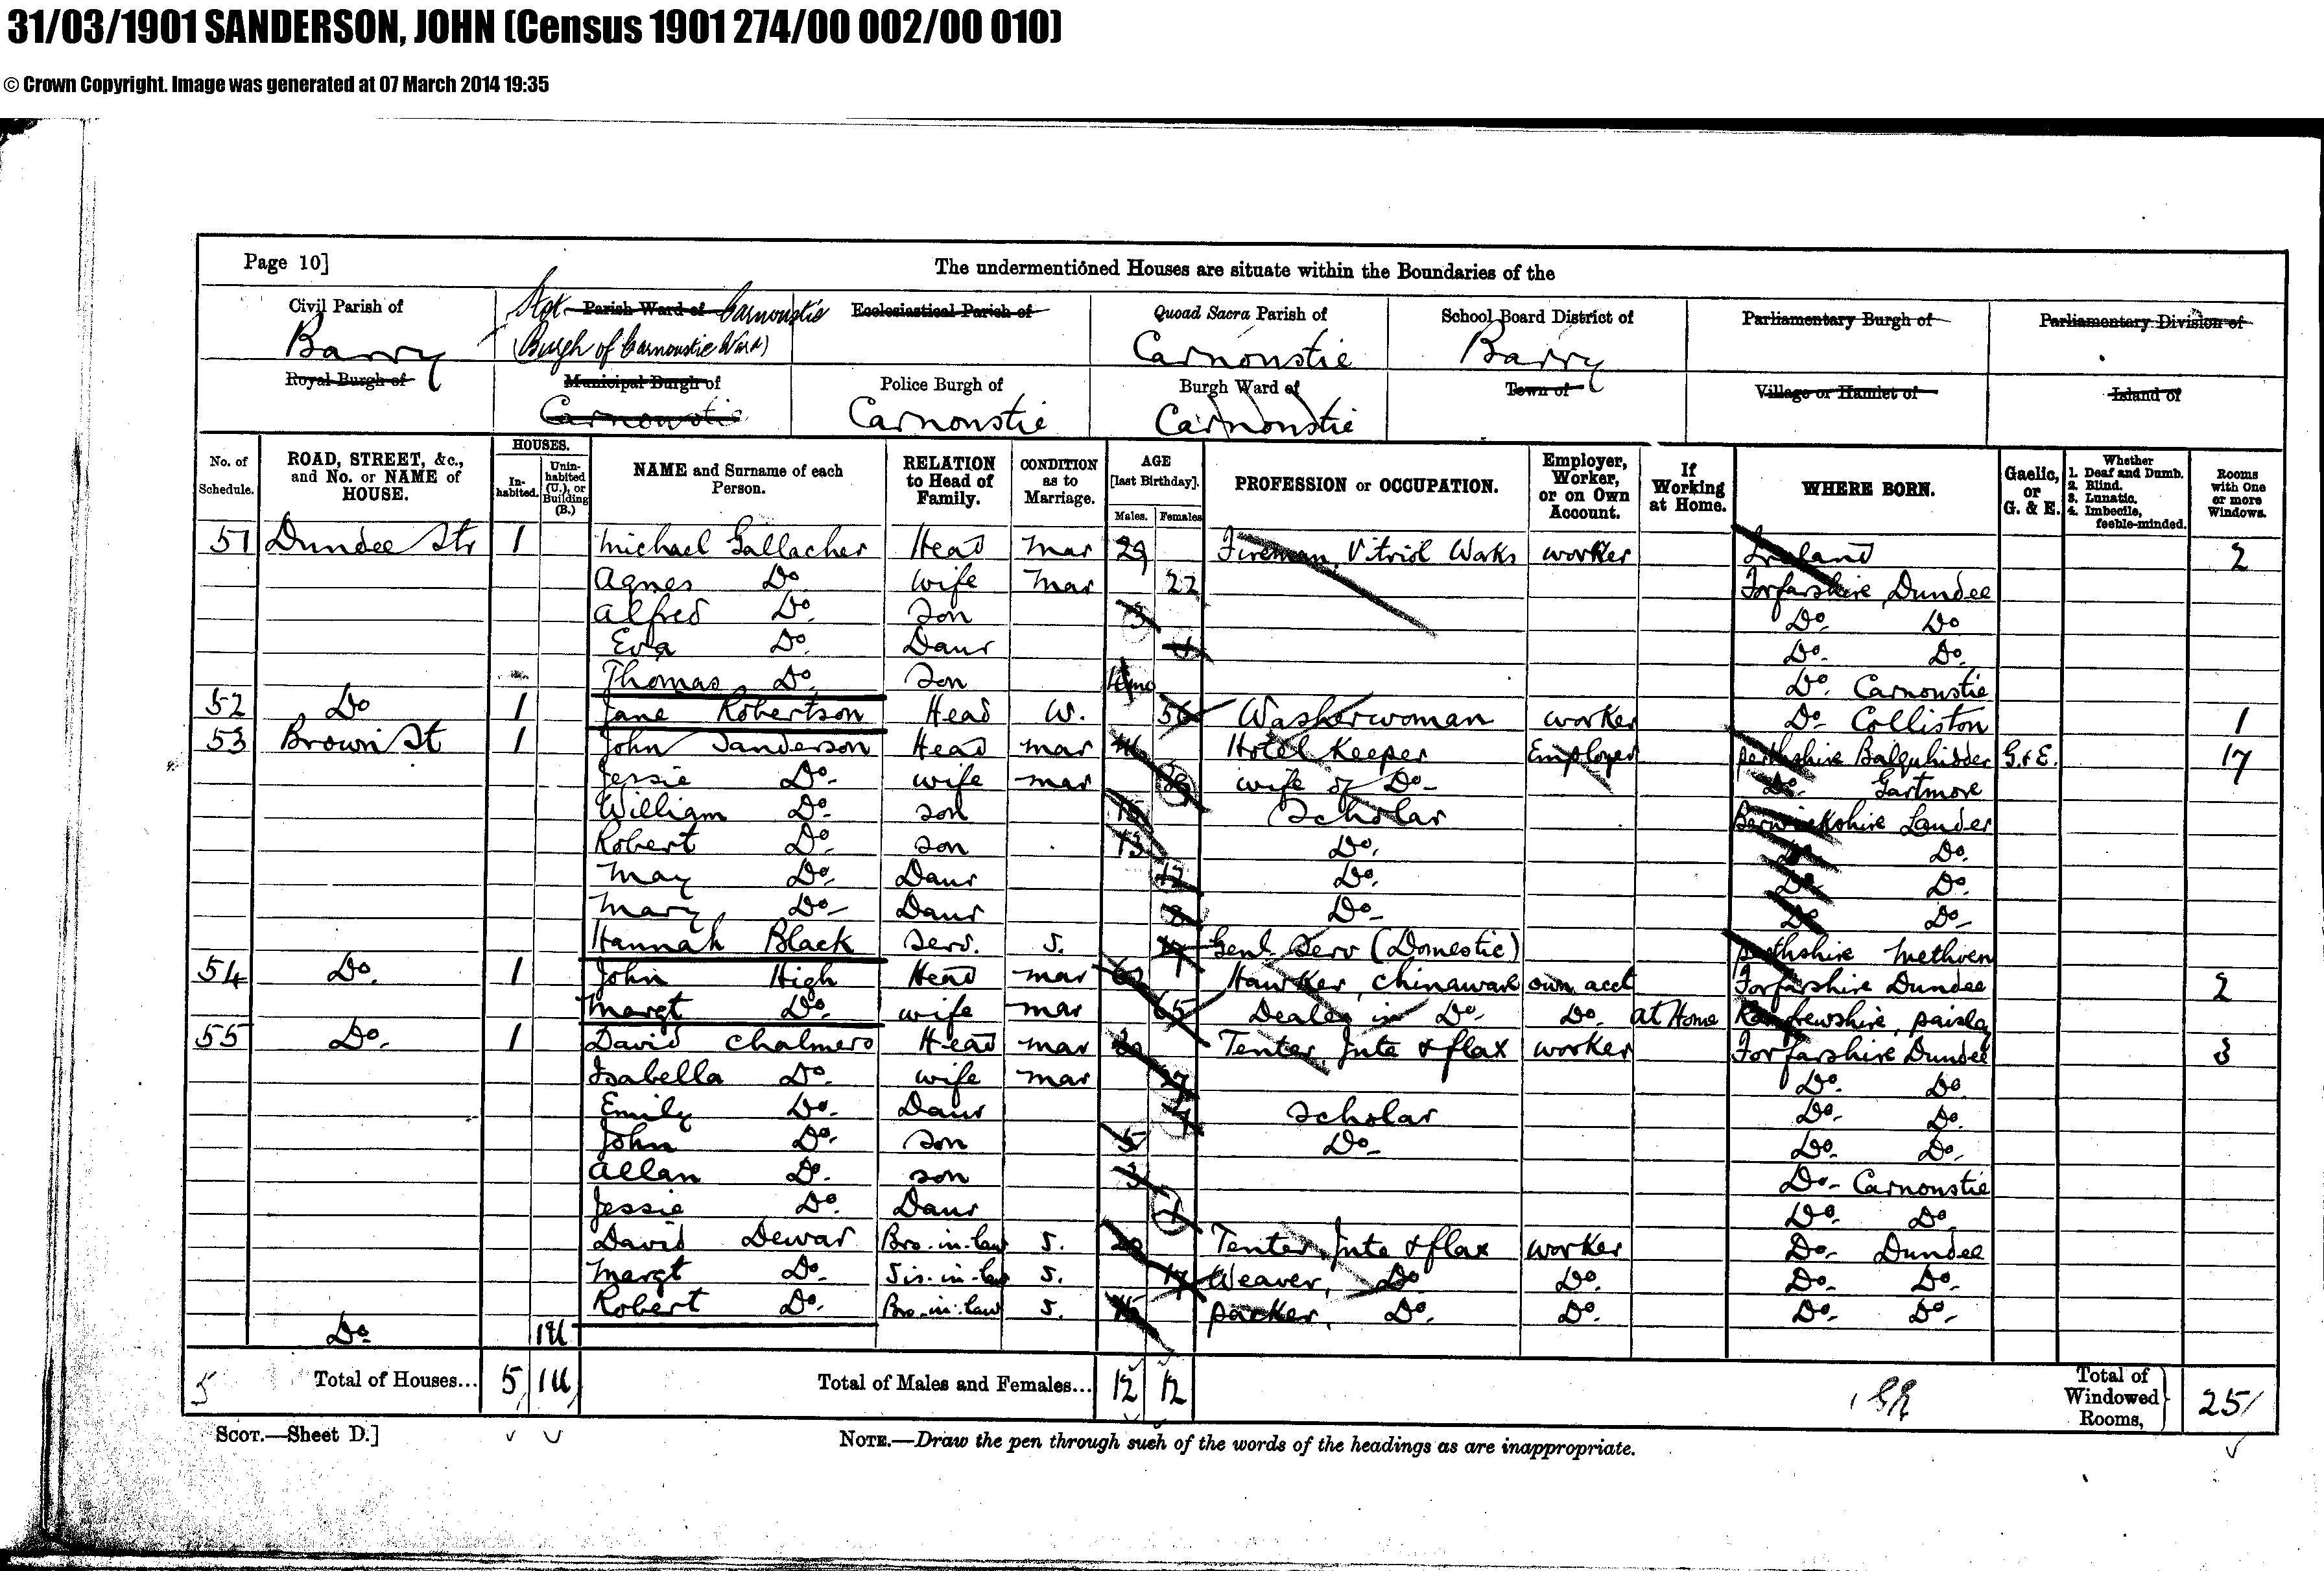 31/03/1901 SANDERSON, JOHN (Census 1901 274/00 002/00 010)
© Crown Copyright. Image was generated at 07 March 2014 19:35
Page 10] The undermentioned Houses are situate within the Boundaries of the
Civil Parish of Parish Ward of Carnoustie Ecclesiastical Parish of Quoad Sacra Parish of School Board District of Parliamentary Burgh of Parliamentary Division of
Barry (Burgh of Carnoustie Ward) Carnoustie Barry
Royal Burgh of Municipal Burgh of Police Burgh of Burgh Ward of Town of Village or Hamlet of Island of
Carnoustie Carnoustie Carnoustie
No. of Schedule. ROAD, STREET, &c., and No. or NAME of HOUSE. HOUSES. In-habited. Unin-habited (U.), or Building (B.) NAME and Surname of each Person. RELATION to Head of Family. CONDITION as to Marriage. AGE [last Birthday]. Males. Females PROFESSION or OCCUPATION. Employer, Worker, or on Own Account. If Working at Home. WHERE BORN. Gaelic, or G. & E. Whether 1. Deaf and Dumb. 2. Blind. 3. Lunatic. 4. Imbecile, feeble-minded. Rooms with One or more Windows.
51 Dundee Str 1 Michael Gallacher Head Mar 29 Fireman, Vitriol Works worker Ireland 2
Agnes Do wife Mar 22 Forfarshire Dundee
Alfred Do. Son 3 Do. Do
Eva Do. Daur Do. Do.
Thomas Do. Son Do. Carnoustie
52 Do 1 Jane Robertson Head W. 56 Washerwoman worker Do- Colliston 1
53 Brown St 1 John Sanderson Head mar Hotel Keeper Employer perthshire Balquhidder G. & E. 17
Jessie Do- wife mar wife of Do- Do. Gartmore
William Do- son 15 Scholar Berwickshire Lauder
Robert Do- son 13 Do. Do. Do.
May Do- Daur 12 Do. Do. Do.
Mary Do- Daur 8 Do- Do Do-
Hannah Black Serv. S. Genl Serv (Domestic) perthshire Methven
54 Do. 1 John High Head mar Hawker, chinaware own acct Forfarshire Dundee 2
Margt Do. wife mar 65 Dealer in Do- Do. at Home Renfrewshire, paisley
55 Do. 1 David Chalmers Head mar 30 Tenter, Jute & flax worker Forfarshire Dundee 3
Isabella Do. wife mar 27 Do. Do
Emily Do. Daur Scholar Do- Do.
John Do- son 5 Do- Do. Do-
Allan Do- son 3 Do- Carnoustie
Jessie Do. Daur Do. Do.
David Dewar Bro-in-law S. 20 Tenter, Jute & flax worker Do- Dundee
Margt Do- Sis-in-law S. 17 Weaver, Do Do. Do- Do-
Robert Do- Bro-in-law S. packer, Do. Do. Do- Do-
Do 1U
5 Total of Houses... 5 1U Total of Males and Females... 12 12 Total of Windowed Rooms, 25
SCOT.—Sheet D.] NOTE.—Draw the pen through such of the words of the headings as are inappropriate.